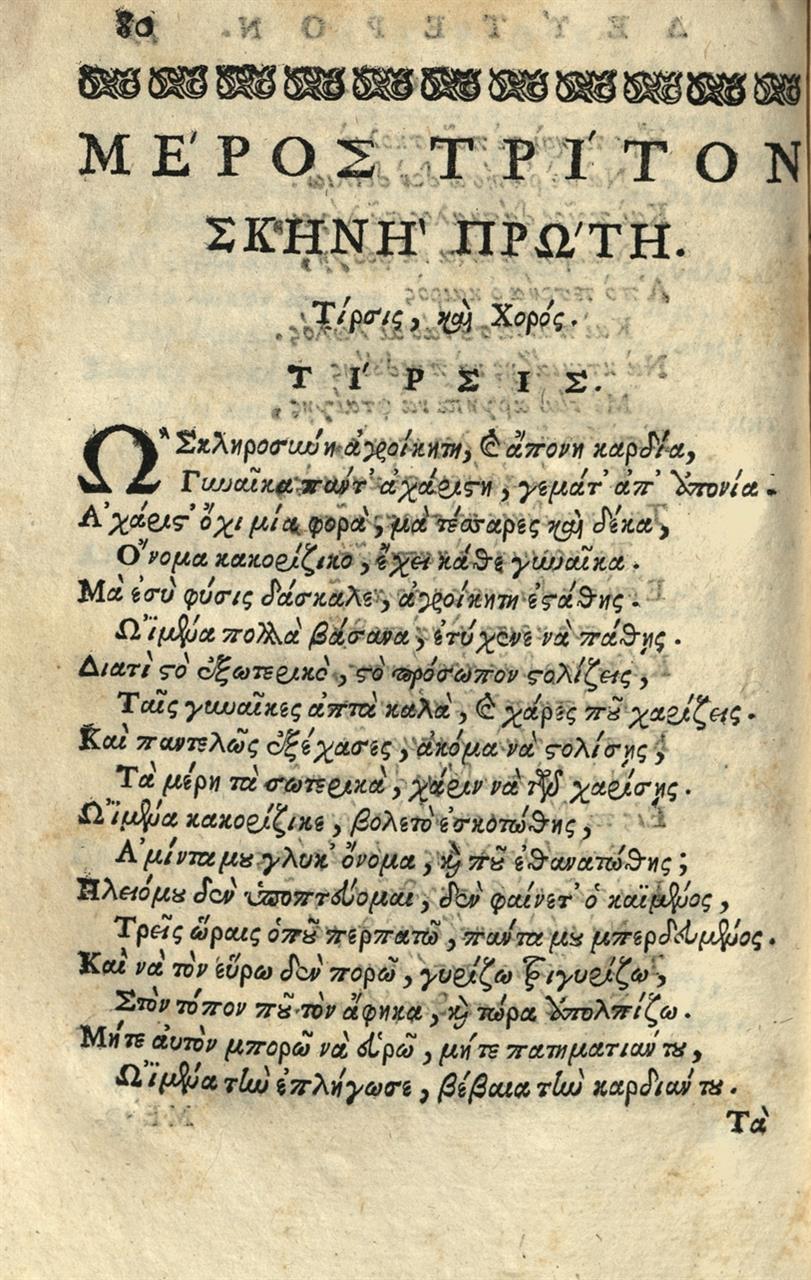 80
ΜΕ'ΡΟΣ ΤΡΙ'ΤΟΝ
ΣΚΗΝΗ' ΠΡΩ'ΤΗ.
Τίρσις, καὶ Χορός.
ΤΙ'ΡΣΙΣ.
Ω῏ Σκληροσυύη ἀγροίκητη, ὲ ἄπονη καρδία,
Γυναῖκα παύτ' ἀχάριστη, γεμάτ' ἀπ' ὑπονία.
Α'χάρις' ὄχι μία φορὰ, μὰ τέσσαρες καὶ δέκα,
Ο῎νομα κακορίζικο, ἔχει κάθε γυναῖκα.
Μὰ ἐσὺ φύσις δάσκαλε, ἀγροίκητη ἐστάθης.
Ω῎ϊμένα πολλὰ βάσανα, ἐτύχενε νὰ πάθης.
Διατὶ τὸ ἐξωτερικὸ, τὸ πρόσωπον στολίζεις,
Ταῖς γυναῖκες ἀπτὰ καλὰ, ὲ χάρες ποῦ χαρίζεις.
Καὶ παντελῶς ἐξέχασες, ἀκόμα νὰ στολίσης,
Τὰ μέρη τὰ σωτερικὰ, χάριν νὰ τῶν χαρίσης.
Ω῎ϊμένα κακορίζικε, βολετὸ ἐσκοτώθης,
Α'μίντα μου γλυκ' ὄνομα, κὶ ποῦ ἐθανατώθης;
Ηλειόμου δὲν ὑποπτεύομαι, δὲν φαίνετ' ὁ καϊμένος,
Τρεῖς ὥραις ὁποῦ περπατῶ, πάντα μου μπερδευμένος.
Καὶ νὰ τὸν εὕρω δὲν πορῶ, γυρίζω ξιγυρίζω,
Στὸν τόπον ποῦ τὸν ἄφηκα, κὶ τώρα ὑπολπίζω.
Μήτε αὐτὸν μπορῶ νὰ εὑρῶ, μήτε πατηματιάν του,
Ω῎ϊμένα τὴν ἐπλήγωσε, βέβαια τὴν καρδιάν του.
Τὰ